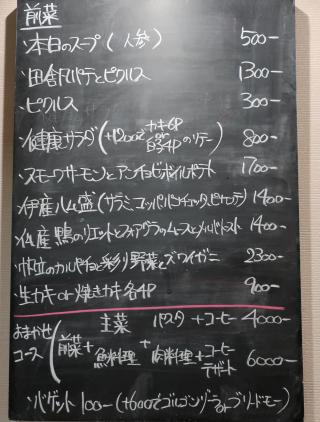 前菜
・本日のスープ（人参） 500-
・田舎風パテとピクルス 1300-
・ピクルス 300-
・健康サラダ（+1200でカキ6P 白子4Pのソテー） 800-
・スモークサーモンとアンチョビポイルポテト 1700-
・伊産ハム盛（サラミ、コッパ、パンチェッタ、） 1400-
・仏産鴨のリエットとフォアグラのムースとメルバトースト 1400-
・帆立のカルパッチョと彩り野菜とズワイガニ 2300-
・生カキ or 焼きカキ 各4P 900-
おまかせコース
主菜 パスタ+コーヒー 4000-
前菜+魚料理+肉料理+コーヒー デザート 6000-
・バゲット 100-（+600でゴルゴンゾーラorブリードモー）